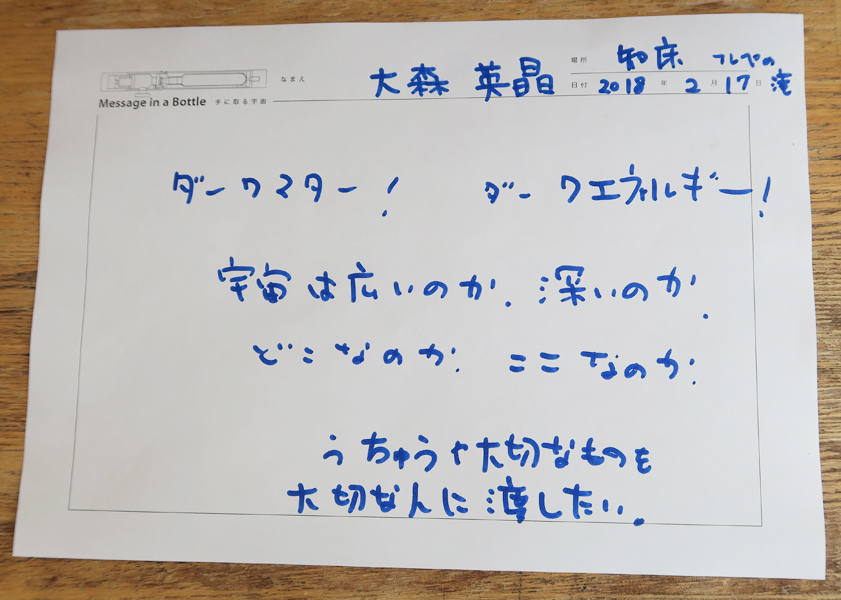 なまえ 大森 英晶
場所 知床 フレペの滝
日付 2018 年 2 月 17 日
Message in a Bottle 手に取る宇宙
ダークマター! ダークエネルギー!
宇宙は広いのか. 深いのか.
どこなのか. ここなのか.
うちゅうや大切なものを
大切な人に渡したい.